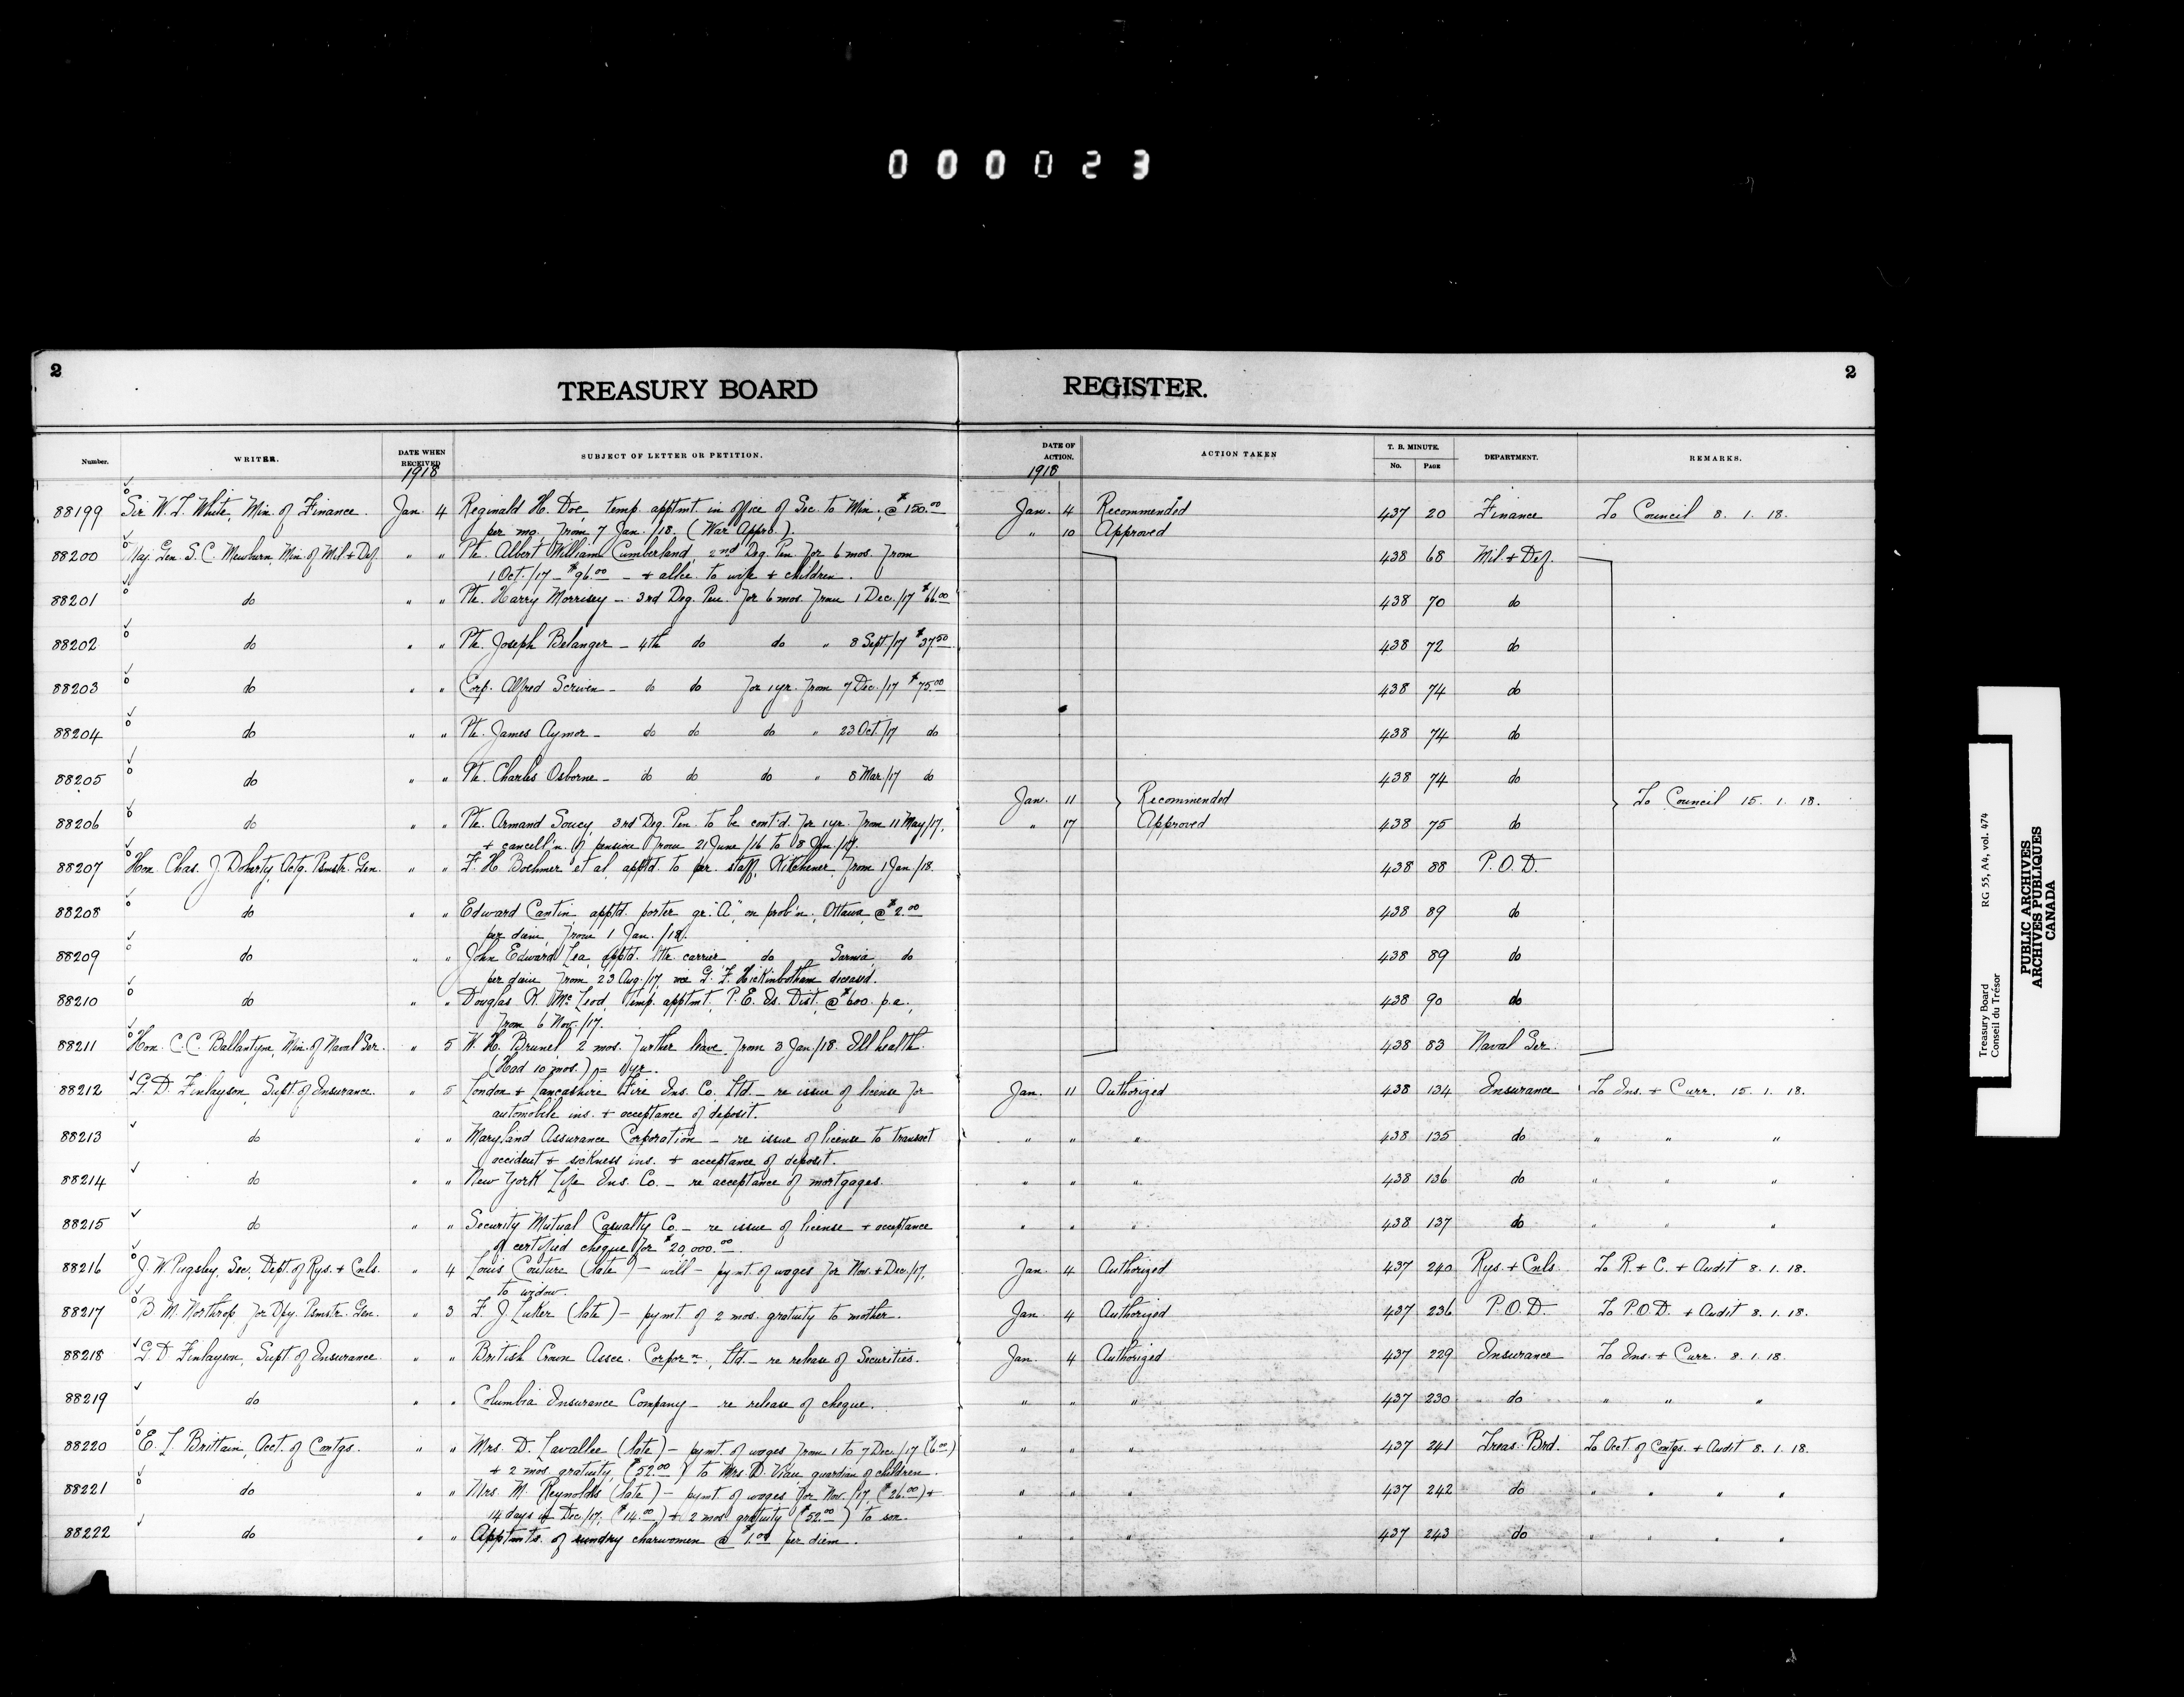 000023
2
TREASURY BOARD REGISTER.
2
Number. WRITER. DATE WHEN RECEIVED SUBJECT OF LETTER OR PETITION. DATE OF ACTION. ACTION TAKEN T. B. MINUTE. No. PAGE DEPARTMENT. REMARKS.
1918 1918
88199 Sir W. T. White, Min. of Finance. Jan. 4 Reginald H. Doe, temp. apptmt. in office of Sec. to Min., @ $150.00 Jan. 4 Recommended 437 20 Finance To Council 8. 1. 18.
per mo. from 7 Jan./18. (War Appro.) " 10 Approved
88200 Maj. Gen. S. C. Mewburn, Min. of Mil. + Def. " " Pte. Albert William Cumberland, 2nd Deg. Pen. for 6 mos. from 438 68 Mil. + Def.
1 Oct./17 - $96.00 - + allce. to wife + children.
88201 do " " Pte. Harry Morrisey - 3rd Deg. Pen. for 6 mos. from 1 Dec./17 $66.00 438 70 do
88202 do " " Pte. Joseph Belanger - 4th do do " 8 Sept./17 $37.50 438 72 do
88203 do " " Corp. Alfred Scriven - do do for 1 yr. from 7 Dec./17 $75.00 438 74 do
88204 do " " Pte. James Aymor - do do do " 23 Oct./17 do 438 74 do
88205 do " " Pte. Charles Osborne - do do do " 8 Mar./17 do 438 74 do
Jan. 11 Recommended To Council 15. 1. 18.
88206 do " " Pte. Armand Soucy, 3rd Deg. Pen. to be cont'd. for 1 yr. from 11 May/17, " 17 Approved 438 75 do
+ cancell'n. of pension from 21 June/16 to 8 Jan./17.
88207 Hon. Chas. J. Doherty, Actg. Psmstr. Gen. " " F. H. Boehmer et al, apptd. to per. staff, Kitchener, from 1 Jan./18. 438 88 P.O.D.
88208 do " " Edward Cantin apptd. porter gr. "A", on prob'n., Ottawa, @ $2.00 438 89 do
per diem, from 1 Jan./18.
88209 do " " John Edward Lea, apptd. lttr. carrier do Sarnia, do 438 89 do
per diem from 23 Aug./17, vice G. F. Hickinbotham deceased.
88210 do " " Douglas K. McLeod, temp. apptmt., P. E. Is. Dist., @ $600. p.a., 438 90 do
from 6 Nov./17.
88211 Hon. C. C. Ballantyne, Min. of Naval Ser. " 5 W. H. Brunel 2 mos. further leave from 3 Jan./18. Ill health. 438 83 Naval Ser.
(Had 10 mos.) = 1 yr.
88212 G. D. Finlayson, Supt. of Insurance. " 5 London + Lancashire Fire Ins. Co. Ltd. - re issue of license for Jan. 11 Authorized 438 134 Insurance To Ins. + Curr. 15. 1. 18.
automobile ins. + acceptance of deposit.
88213 do " " Maryland Assurance Corporation - re issue of license to transact " " " 438 135 do " " "
accident + sickness ins. + acceptance of deposit.
88214 do " " New York Life Ins. Co. - re acceptance of mortgages. " " " 438 136 do " " "
88215 do " " Security Mutual Casualty Co. - re issue of license + acceptance " " " 438 137 do " " "
of certified cheque for $20,000.00.
88216 J. W. Pugsley, Sec. Dept. of Rys. + Cnls. " 4 Louis Couture (late) - will - pymt. of wages for Nov. + Dec./17, Jan. 4 Authorized 437 240 Rys. + Cnls. To R. + C. + Audit 8. 1. 18.
to widow.
88217 B. M. Northrop for Dpy. Psmstr. Gen. " 3 F. J. Luker (late) - pymt. of 2 mos. gratuity to mother. Jan. 4 Authorized 437 236 P.O.D. To P.O.D. + Audit 8. 1. 18.
88218 G. D. Finlayson, Supt. of Insurance. " " British Crown Assce. Corpor'n., Ltd. - re release of Securities. Jan. 4 Authorized 437 229 Insurance To Ins. + Curr. 8. 1. 18.
88219 do " " Columbia Insurance Company - re release of cheque. " " " 437 230 do " " "
88220 E. L. Brittain, Acct. of Contgs. " " Mrs. D. Lavallee (late) - pymt. of wages from 1 to 7 Dec./17 ($6.00) " " " 437 241 Treas. Brd. To Acct. of Contgs. + Audit 8. 1. 18.
+ 2 mos. gratuity, ($52.00) to Mrs. D. Viau guardian of children.
88221 do " " Mrs. M. Reynolds (late) - pymt. of wages for Nov./17, ($26.00) + " " " 437 242 do " " " "
14 days of Dec./17, ($14.00) + 2 mos. gratuity ($52.00) to son.
88222 do " " Apptmts. of sundry charwomen @ $1.00 per diem. " " " 437 243 do " " " "
Treasury Board RG 55, A4, vol. 474
Conseil du Trésor
PUBLIC ARCHIVES
ARCHIVES PUBLIQUES
CANADA